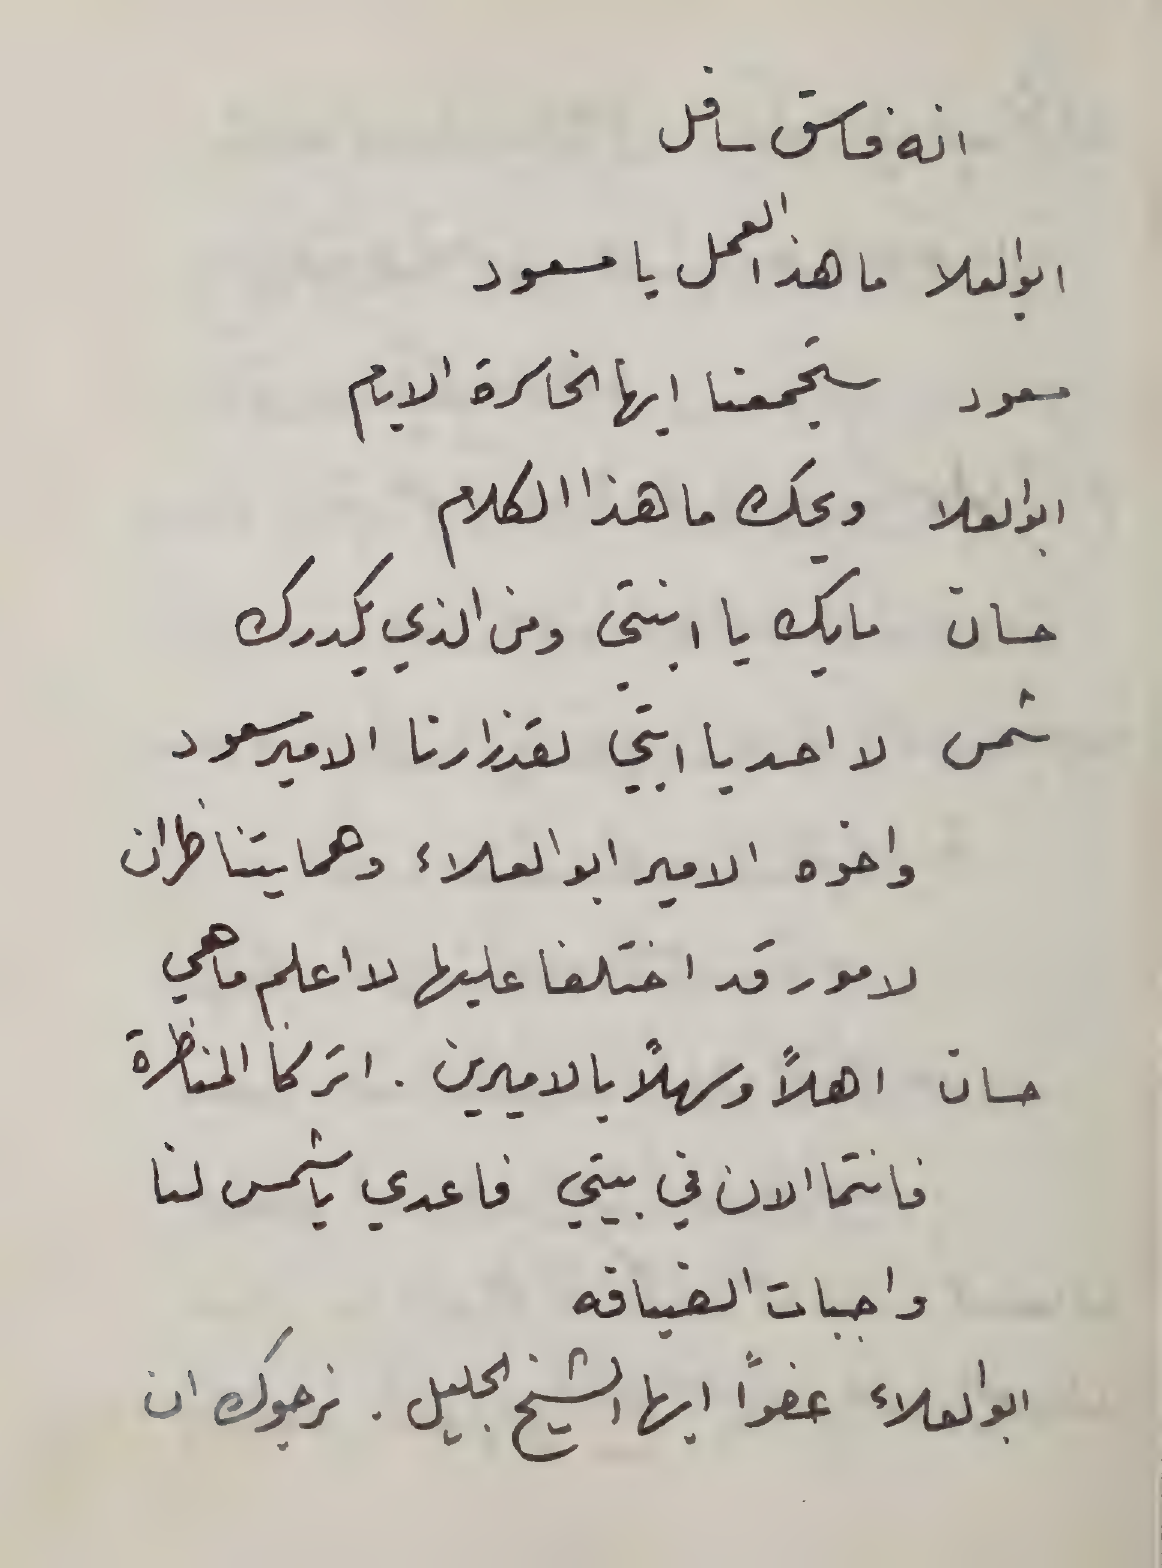 انه فاسق سافل
ابوالعلا ما هذا العمل يا مسعود
مسعود ستجمعنا ايها الخاسرة الايام
ابوالعلا ويحك ما هذا الكلام
حسان مابك يا ابنتي ومن الذي يكدرك
شمس لا احد يا ابتي لقد زارنا الامير مسعود
واخوه الامير ابو العلاء وهما يتناظران
لامور قد اختلفا عليها لا اعلم ماهي
حسان اهلاً وسهلاً بالاميرين . اتركا المناظرة
فانتما الان في بيتي فاعدي يا شمس لنا
واجبات الضيافه
ابوالعلاء عفواً ايها الشيخ الجليل . نرجوك ان